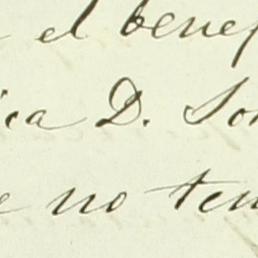 e el benef
ica D. Son
e no ten